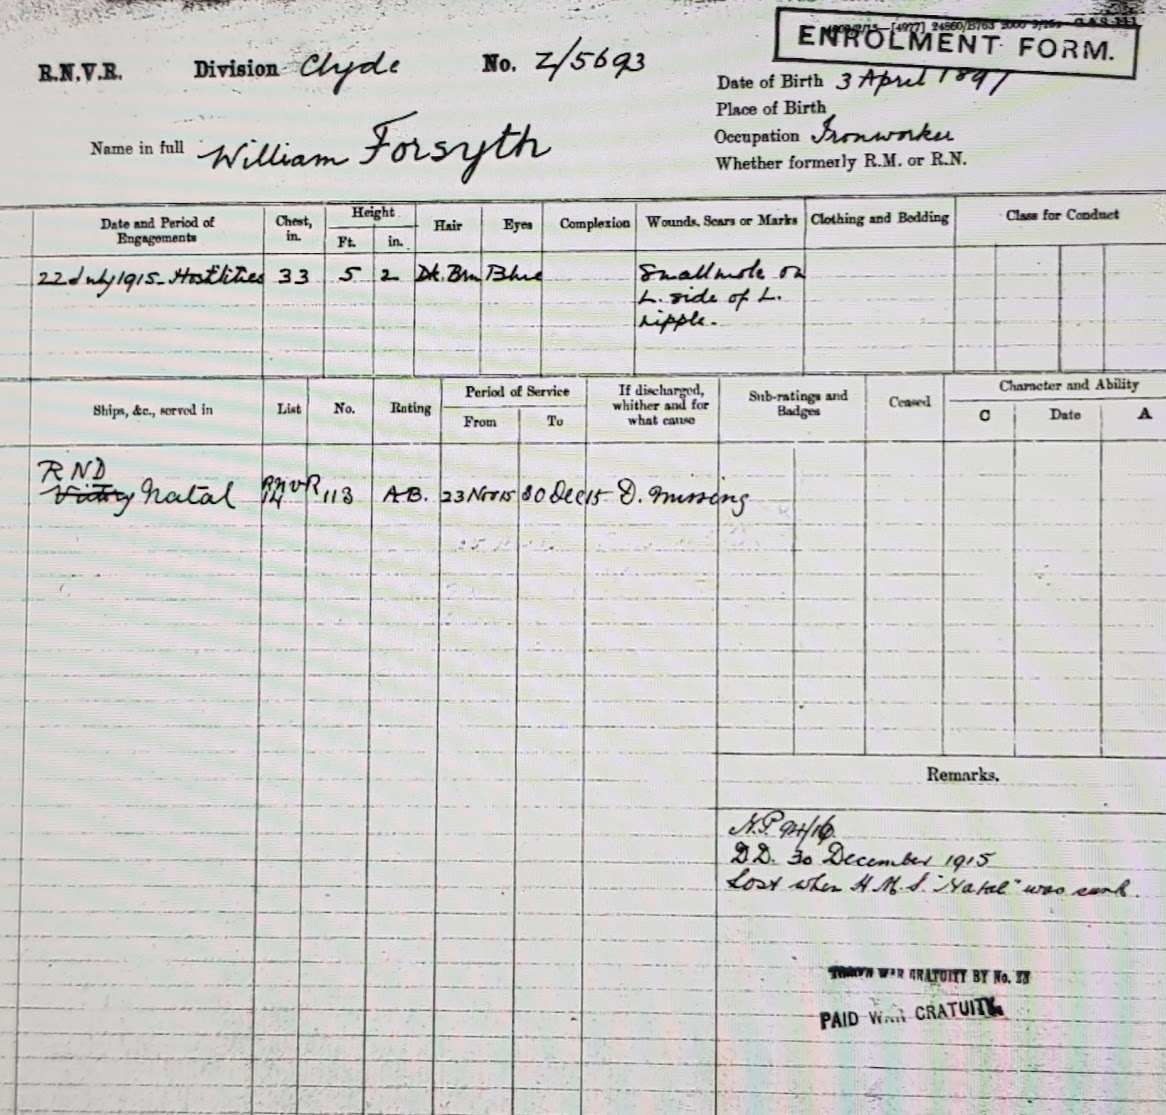 ENROLMENT FORM.
R.N.V.R. Division Clyde No. Z/5693
Date of Birth 3 April 1897
Place of Birth
Occupation Ironworker
Whether formerly R.M. or R.N.
Name in full William Forsyth
Date and Period of Engagements Chest, in. Height Ft. in. Hair Eyes Complexion Wounds, Scars or Marks Clothing and Bedding Class for Conduct
22 July 1915 - Hostilities 33 5 2 Dk. Brn Blue Small mole on
L. side of L.
nipple.
Ships, &c., served in List No. Rating Period of Service From To If discharged, whither and for what cause Sub-ratings and Badges Ceased Character and Ability C Date A
RND
Victory Natal RNVR 113 A.B. 23 Nov 15 30 Dec 15 D. missing
14
Remarks.
N.P. 94/16
DD. 30 December 1915
Lost when H.M.S. "Natal" was sunk.
WAR GRATUITY BY No.
PAID WAR GRATUITY